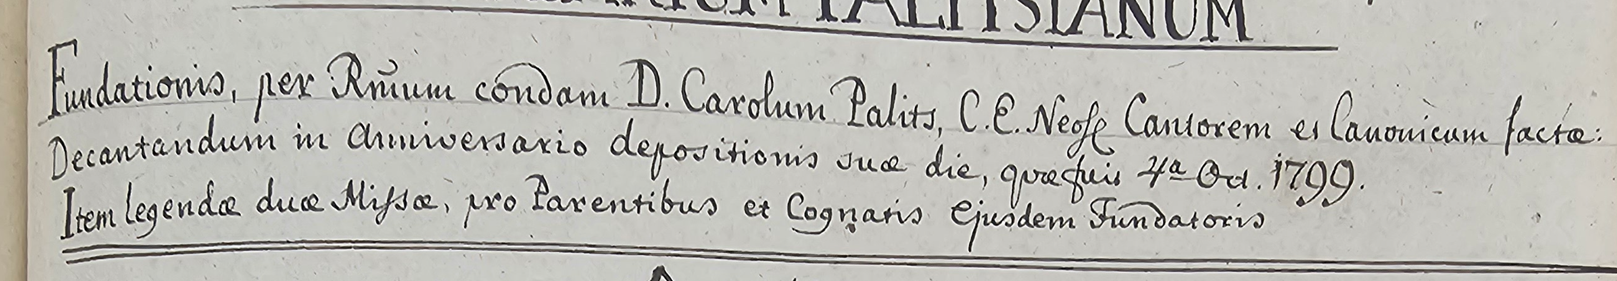 PALITSIANUM
Fundationis, per Rm̃um condam D. Carolum Palits, C. E. Neoss Cantorem et Canonicum factæ:
Decantandum in Anniversario depositionis suæ die, quæ fuit 4a Oct. 1799.
Item legendæ duæ Missæ, pro Parentibus et Cognatis Ejusdem Fundatoris